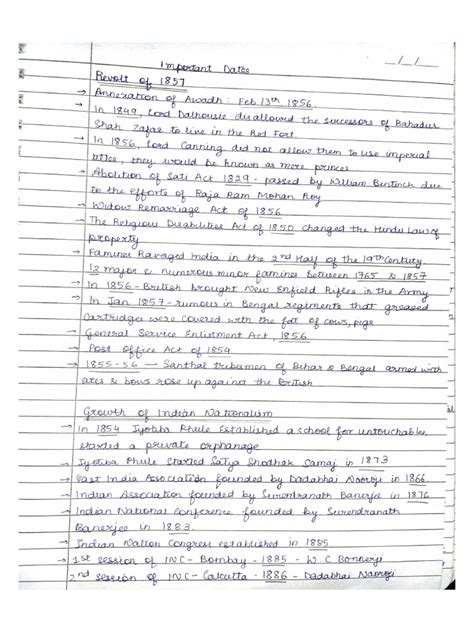 Important Dates
_/_/_
Revolt of 1857
→ Annexation of Awadh: Feb 13th, 1856.
→ In 1849, Lord Dalhousie disallowed the successors of Bahadur
Shah Zafar to live in the Red Fort.
→ In 1856, Lord Canning did not allow them to use imperial
titles, they would be known as mere princes
→ Abolition of Sati Act 1829 - passed by William Bentinck due
to the efforts of Raja Ram Mohan Roy
→ Widow Remarriage Act of 1856
→ The Religious Disabilities Act of 1850 changed the Hindu Law of
property
→ Famines Ravaged India in the 2nd Half of the 19th Century.
12 major & numerous minor famines between 1765 & 1857
→ In 1856 - British brought New Enfield Rifles in the Army
→ In Jan 1857 - rumours in Bengal regiments that greased
Cartridges were covered with the fat of cows, pigs
→ General Service Enlistment Act, 1856
→ Post Office Act of 1854
→ 1855-56 — Santhal tribesmen of Bihar & Bengal armed with
axes & bows rose up against the British
Growth of Indian Nationalism
→ In 1854 Jyotiba Phule Established a school for untouchables,
started a private orphanage
→ Jyotiba Phule Started Satya Shodhak Samaj in 1873
→ East India Association founded by Dadabhai Naoroji in 1866
→ Indian Association founded by Surendranath Banerjee in 1876
→ Indian National Conference founded by Surendranath
Banerjee in 1883.
→ Indian Nation Congress established in 1885
→ 1st session of INC - Bombay - 1885 - W C Bonnerji
2nd session of INC - Calcutta - 1886 - Dadabhai Naoroji